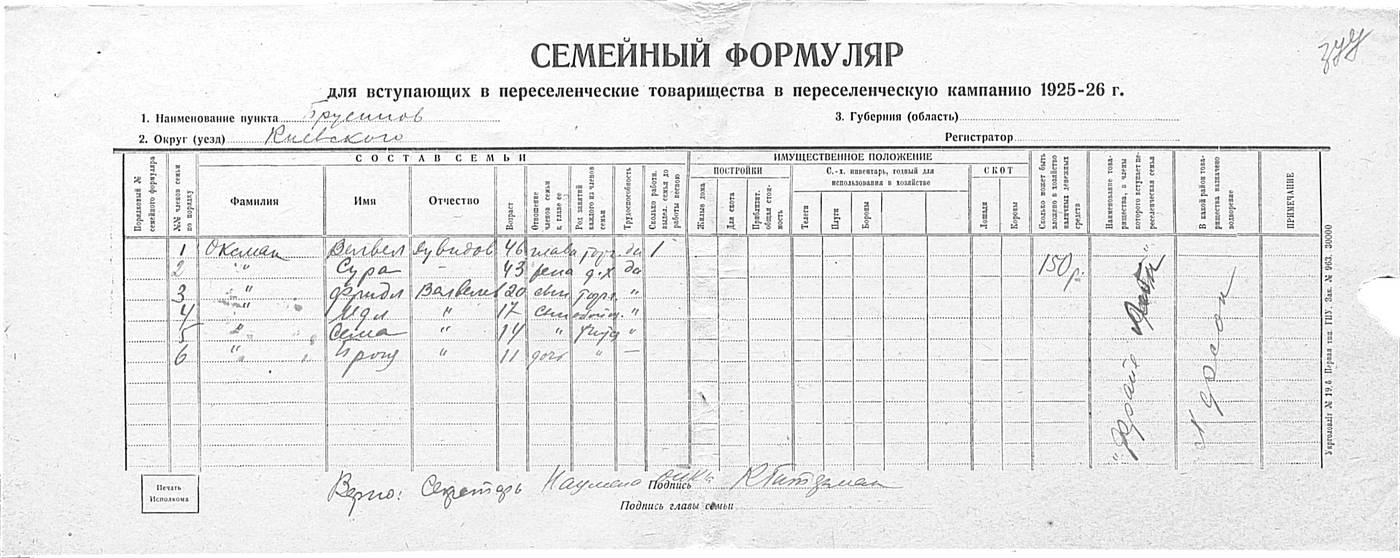 СЕМЕЙНЫЙ ФОРМУЛЯР
для вступающих в переселенческие товарищества в переселенческую кампанию 1925-26 г.
1. Наименование пункта Брусилов
3. Губерния (область)
2. Округ (уезд) Киевского
Регистратор
СОСТАВ СЕМЬИ
ИМУЩЕСТВЕННОЕ ПОЛОЖЕНИЕ
ПОСТРОЙКИ
С.-х. инвентарь, годный для использования в хозяйстве
СКОТ
Порядковый № семейного формуляра
№№ членов семьи по порядку
Фамилия
Имя
Отчество
Возраст
Отношение членов семьи к главе ее
Род занятий каждого из членов семьи
Трудоспособность
Сколько работн. выдел. семья до работы весною
Жилые дома
Для скота
Приблизит. общая стоимость
Телеги
Плуги
Бороны
Лошади
Коровы
Сколько может быть вложено в хозяйство наличных денежных средств
Наименование товарищества, в члены которого вступает переселенческая семья
В какой район товарищества назначено водворение
ПРИМЕЧАНИЕ
1 Оксман Велвел Дувидов 46 глава торг. да 1 150 р.
2 " Сура – 43 жена д.х да
3 " Фридл Велвелев 20 сын торг. "
4 " Идл " 17 сын "
5 " Сема " 14 " "
6 " " 11 доч " –
Херсон
Печать Исполкома
Верно: Секретарь Подпись
Подпись главы семьи
Укрголовліт № 19.б. Первая тип. ГИУ. Зак. № 963. 30000